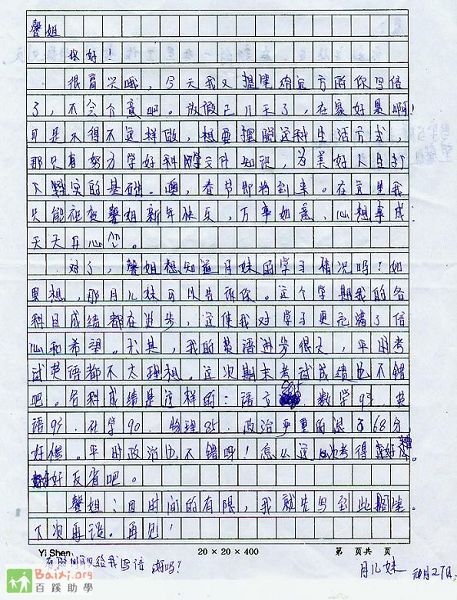 馨姐
你好!
很高兴哦,今天我又提笔给远方的你写信
了,不会介意吧。放假已几天了,在家好累啊!
可是不得不这样做,想要摆脱这种生活方式,
那只有努力学好科学文化知识,为美好人生打
下踏实的基础。噢,春节即将到来。在这里我
只能祝愿馨姐新年快乐,万事如意,心想事成
天天开心。
对了,馨姐想知道月妹的学习情况吗?如
果想,那月儿妹可以告诉你。这个学期我的各
科目成绩都在进步,这使我对学习更充满了信
心和希望。尤其,我的英语进步很大,平时考
试英语都不太理想。这次期末考试成绩也不错
吧。各科成绩是这样的:语文 85 数学93 英
语95 化学90 物理85 政治 68分
平时政治也不错呀!怎么这次考得
好好反省吧。
馨姐:因时间的有限,我就先写到此搁笔。
下次再谈。再见!
Yi Shen 20×20=400 第 页共 页
给我写信 好吗?
月儿妹
月27日
Baixi.org
百蹊助學